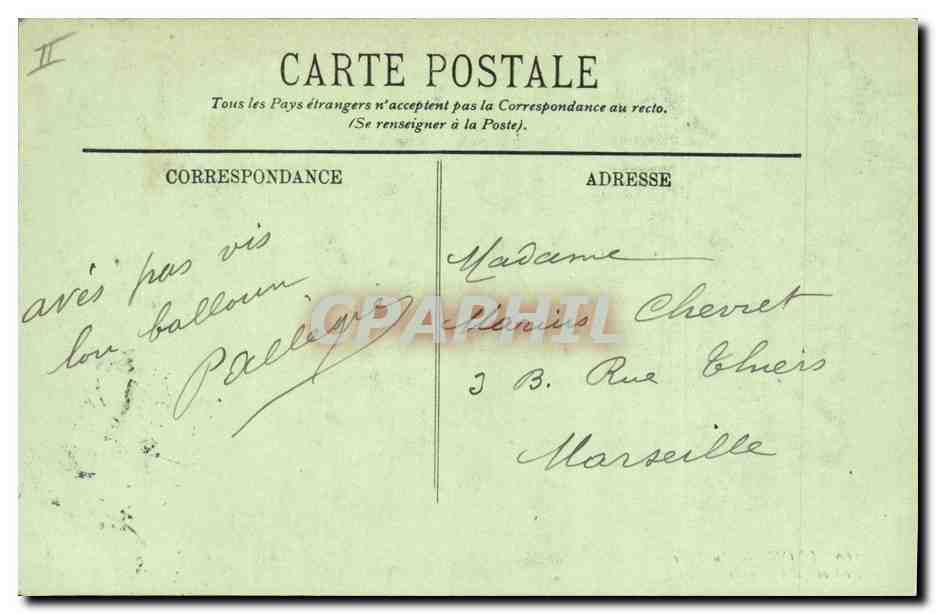 II
CARTE POSTALE
Tous les Pays étrangers n'acceptent pas la Correspondance au recto.
(Se renseigner à la Poste).
CORRESPONDANCE
avès pas vis
lou balloun
ADRESSE
Madame
Marius Chevret
3 B. Rue Thiers
Marseille
CPAPHIL